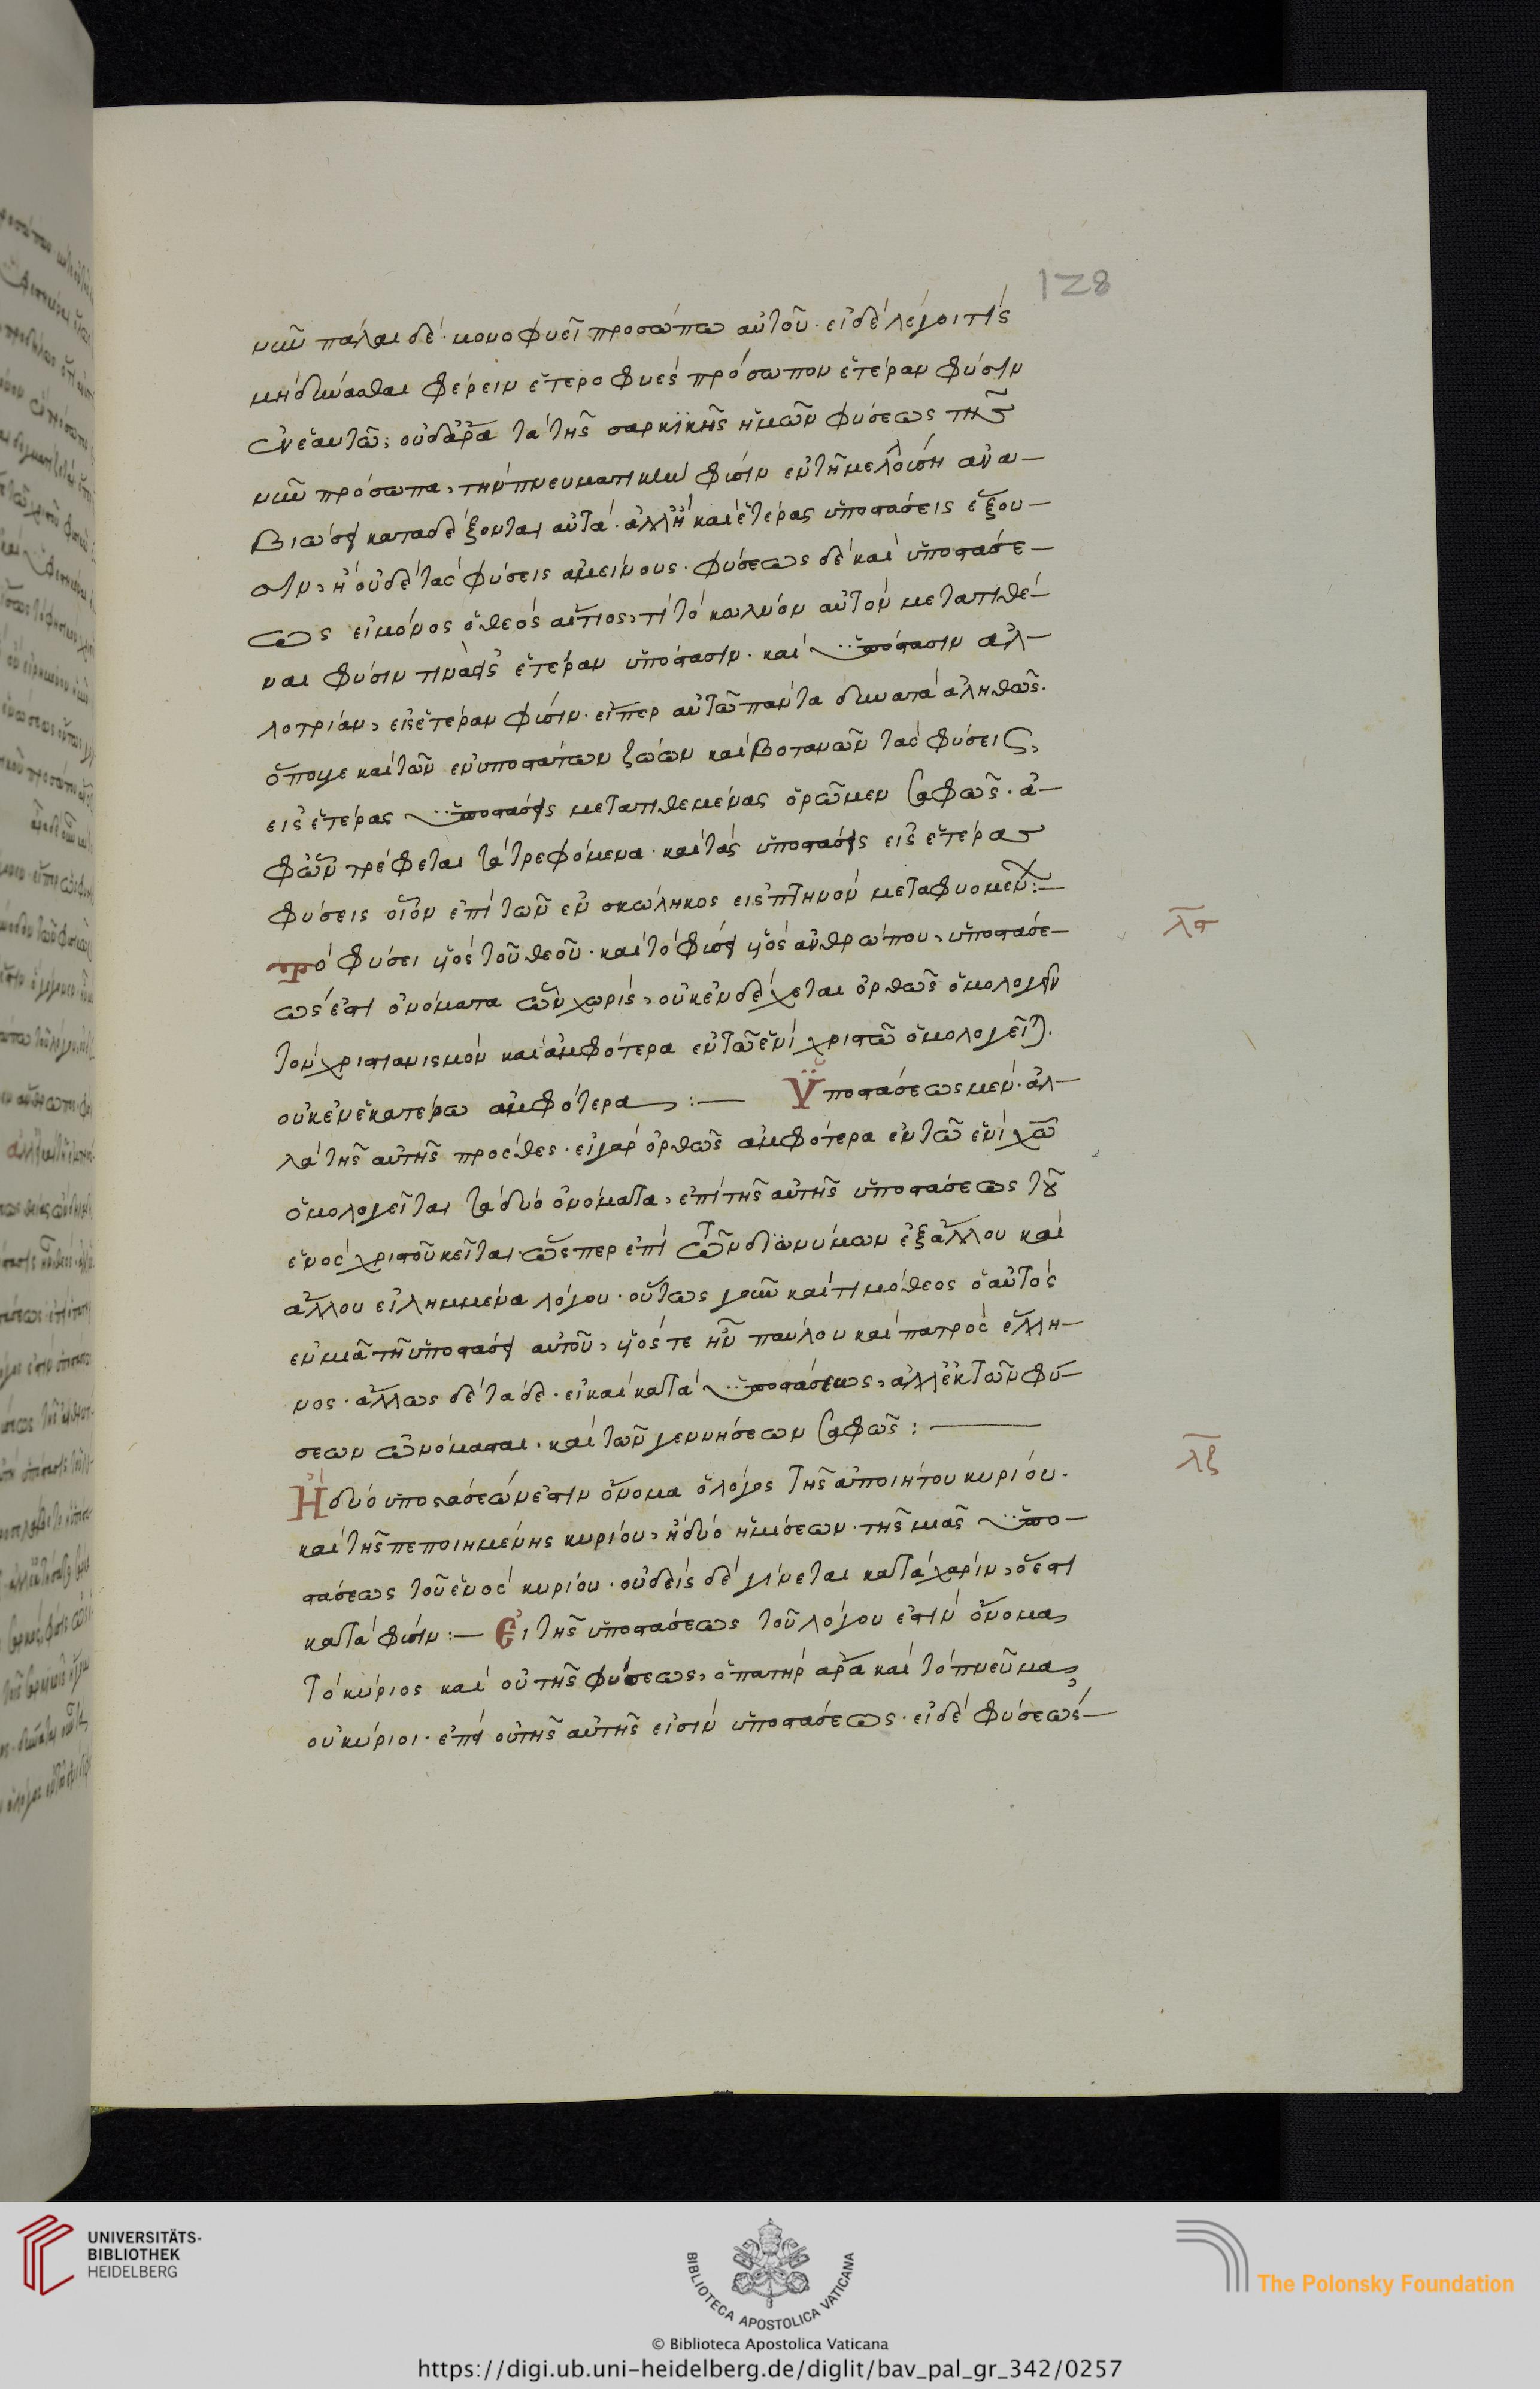 128
νῦν πάλαι δέ· μονοφυεῖ προσώπω αὐτοῦ· εἰ δὲ λέγοι τίς
μὴ δύνασθαι φέρειν ἑτεροφυὲς πρόσωπον ἑτέραν φύσιν
ἐν ἑαυτῶ; οὐδ' ἄρα τὰ τῆς σαρκϊκῆς ἡμῶν φύσεως τῆς
νῦν πρόσωπα, τὴν πνευματικὴν φύσιν ἐν τῆ μελλούση ἀνα-
βιώσει καταδέξονται αὐτά· ἀλλ' ἢ καὶ ἑτέρας ὑποστάσεις ἕξου-
σιν, ἢ οὐδὲ τὰς φύσεις ἀμείνους· φύσεως δὲ καὶ ὑποστάσε-
ως εἰ μόνος ὁ θεὸς αἴτιος, τί τὸ κωλύον αὐτὸν μετατιθέ-
ναι φύσιν τινὰ εἰς ἑτέραν ὑπόστασιν· καὶ ὑπόστασιν ἀλ-
λοτρίαν, εἰς ἑτέραν φύσιν· εἴπερ αὐτῶ πάντα δυνατὰ ἀληθῶς·
ὅπου γε καὶ τῶν ἐνυποστάτων ζώων καὶ βοτανῶν τὰς φύσεις,
εἰς ἑτέρας ὑποστάσεις μετατιθεμένας ὁρῶμεν σαφῶς· ἀ-
φ' ὧν τρέφεται τὰ τρεφόμενα· καὶ τὰς ὑποστάσεις εἰς ἑτέρας
φύσεις οἷον ἐπὶ τῶν ἐν σκώληκος εἰς πτηνὸν μεταφυομέν:—
λς
Τὸ φύσει υἱὸς τοῦ θεοῦ· καὶ τὸ φύσει υἱὸς ἀνθρώπου, ὑποστάσε-
ως ἐστὶ ὀνόματα ὧν χωρὶς, οὐκ ἐνδέχεται ὀρθῶς ὁμολογεῖν
τὸν χριστιανισμὸν καὶ ἀμφότερα ἐν τῶ ἑνὶ χριστῶ ὁμολογεῖται·
οὐκ ἐν ἑκατέρω ἀμφότερα:— Ὑποστάσεως μέν· ἀλ-
λὰ τῆς αὐτῆς πρόσθες· εἰ γὰρ ὀρθῶς ἀμφότερα ἐν τῶ ἑνὶ χῶ
ὁμολογεῖται τὰ δύο ὀνόματα, ἐπὶ τῆς αὐτῆς ὑποστάσεως τοῦ
ἑνὸς χριστοῦ κεῖται· ὥσπερ ἐπὶ τῶν διωνύμων ἐξ ἄλλου καὶ
ἄλλου εἰλημμένα λόγου· οὕτως γοῦν καὶ τιμόθεος ὁ αὐτὸς
ἐν μιᾶ τῆ ὑποστάσει αὐτοῦ, υἱός τε ἦν παύλου καὶ πατρὸς ἕλλη-
νος· ἄλλως δὲ τάδε· εἰ καὶ κατὰ ὑποστάσεως, ἀλλ' ἐκ τῶν φύ-
σεων ὠνόμασται· καὶ τῶν γεννήσεων σαφῶς:—
λζ
Ἢ δύο ὑποστάσεών ἐστιν ὄνομα ὁ λόγος τῆς ἀποιήτου κυρίου·
καὶ τῆς πεποιημένης κυρίου, ἢ δύο ἡμίσεων· τῆς μιᾶς ὑπο-
στάσεως τοῦ ἑνὸς κυρίου· οὐδεὶς δὲ γίνεται κατὰ χάριν, ὅ ἐστι
κατὰ φύσιν:— Εἰ τῆς ὑποστάσεως τοῦ λόγου ἐστὶν ὄνομα
τὸ κύριος καὶ οὐ τῆς φύσεως, ὁ πατὴρ ἄρα καὶ τὸ πνεῦμα,
οὐ κύριοι· ἐπεὶ οὐ τῆς αὐτῆς εἰσὶν ὑποστάσεως· εἰ δὲ φύσεως—
UNIVERSITÄTS-
BIBLIOTHEK
HEIDELBERG
BIBLIOTECA APOSTOLICA VATICANA
The Polonsky Foundation
© Biblioteca Apostolica Vaticana
https://digi.ub.uni-heidelberg.de/diglit/bav_pal_gr_342/0257